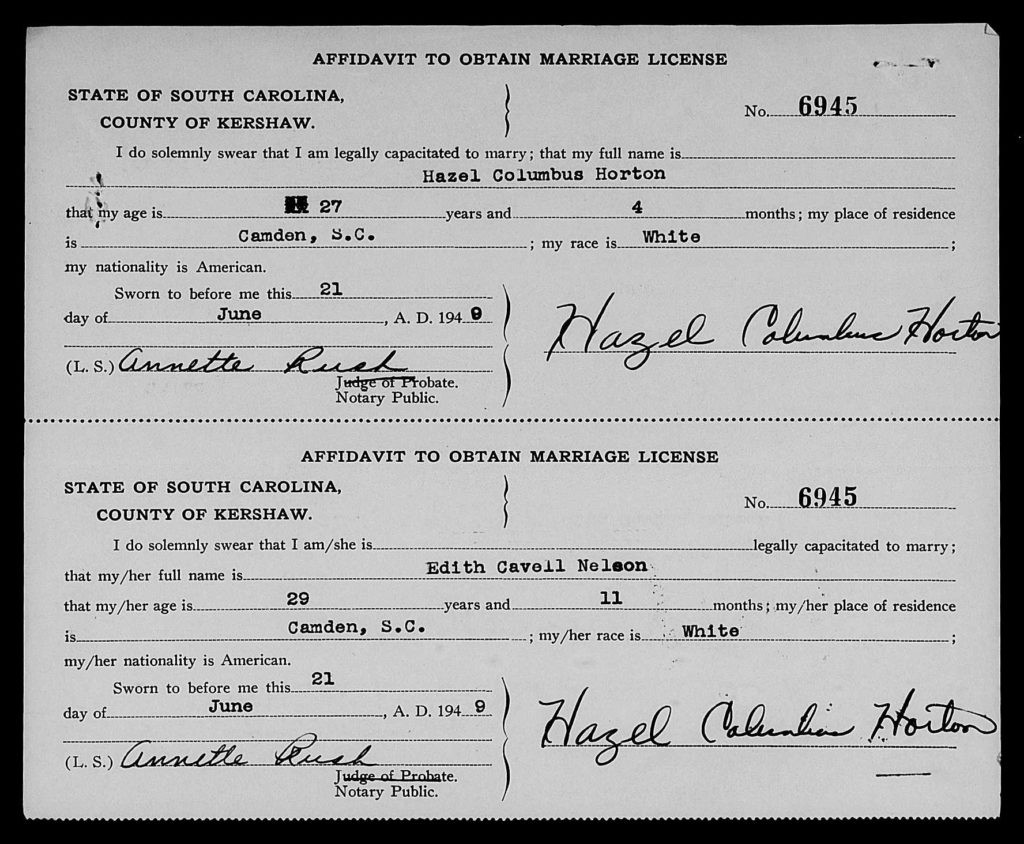 AFFIDAVIT TO OBTAIN MARRIAGE LICENSE
STATE OF SOUTH CAROLINA,
COUNTY OF KERSHAW.
No. 6945
I do solemnly swear that I am legally capacitated to marry; that my full name is
Hazel Columbus Horton
that my age is 27 years and 4 months; my place of residence
is Camden, S.C. ; my race is White ;
my nationality is American.
Sworn to before me this 21
day of June, A. D. 1949
Hazel Columbus Horton
(L. S.) Annette Rush
Judge of Probate.
Notary Public.
AFFIDAVIT TO OBTAIN MARRIAGE LICENSE
STATE OF SOUTH CAROLINA,
COUNTY OF KERSHAW.
No. 6945
I do solemnly swear that I am/she is legally capacitated to marry;
that my/her full name is Edith Cavell Nelson
that my/her age is 29 years and 11 months; my/her place of residence
is Camden, S.C. ; my/her race is White ;
my/her nationality is American.
Sworn to before me this 21
day of June, A. D. 1949
Hazel Columbus Horton
(L. S.) Annette Rush
Judge of Probate.
Notary Public.